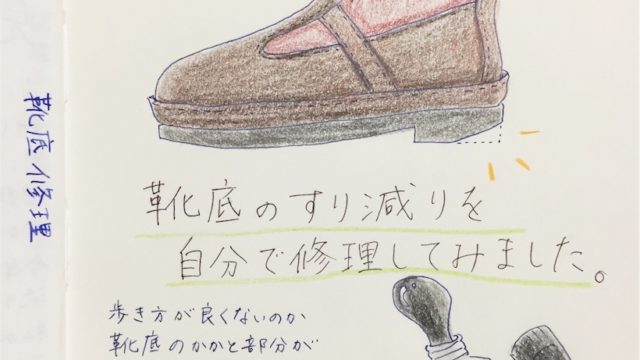 靴底修理
靴底のすり減りを
自分で修理してみました。
歩き方が良くないのか
靴底のかかと部分が